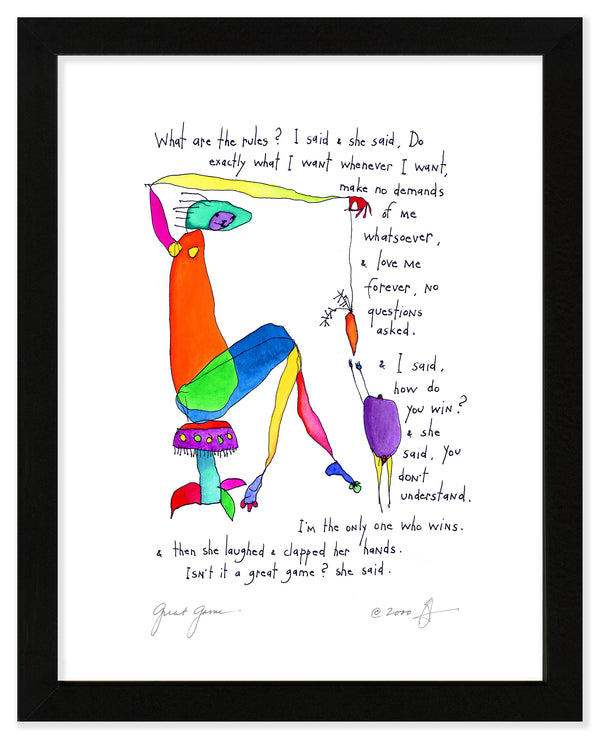 What are the rules? I said & she said, Do
exactly what I want whenever I want,
make no demands
of me
whatsoever,
& love me
forever, no
questions
asked.
& I said,
how do
you win?
& she
said, You
don't
understand.
I'm the only one who wins.
& then she laughed & clapped her hands.
Isn't it a great game? she said.
Great Game
© 2000